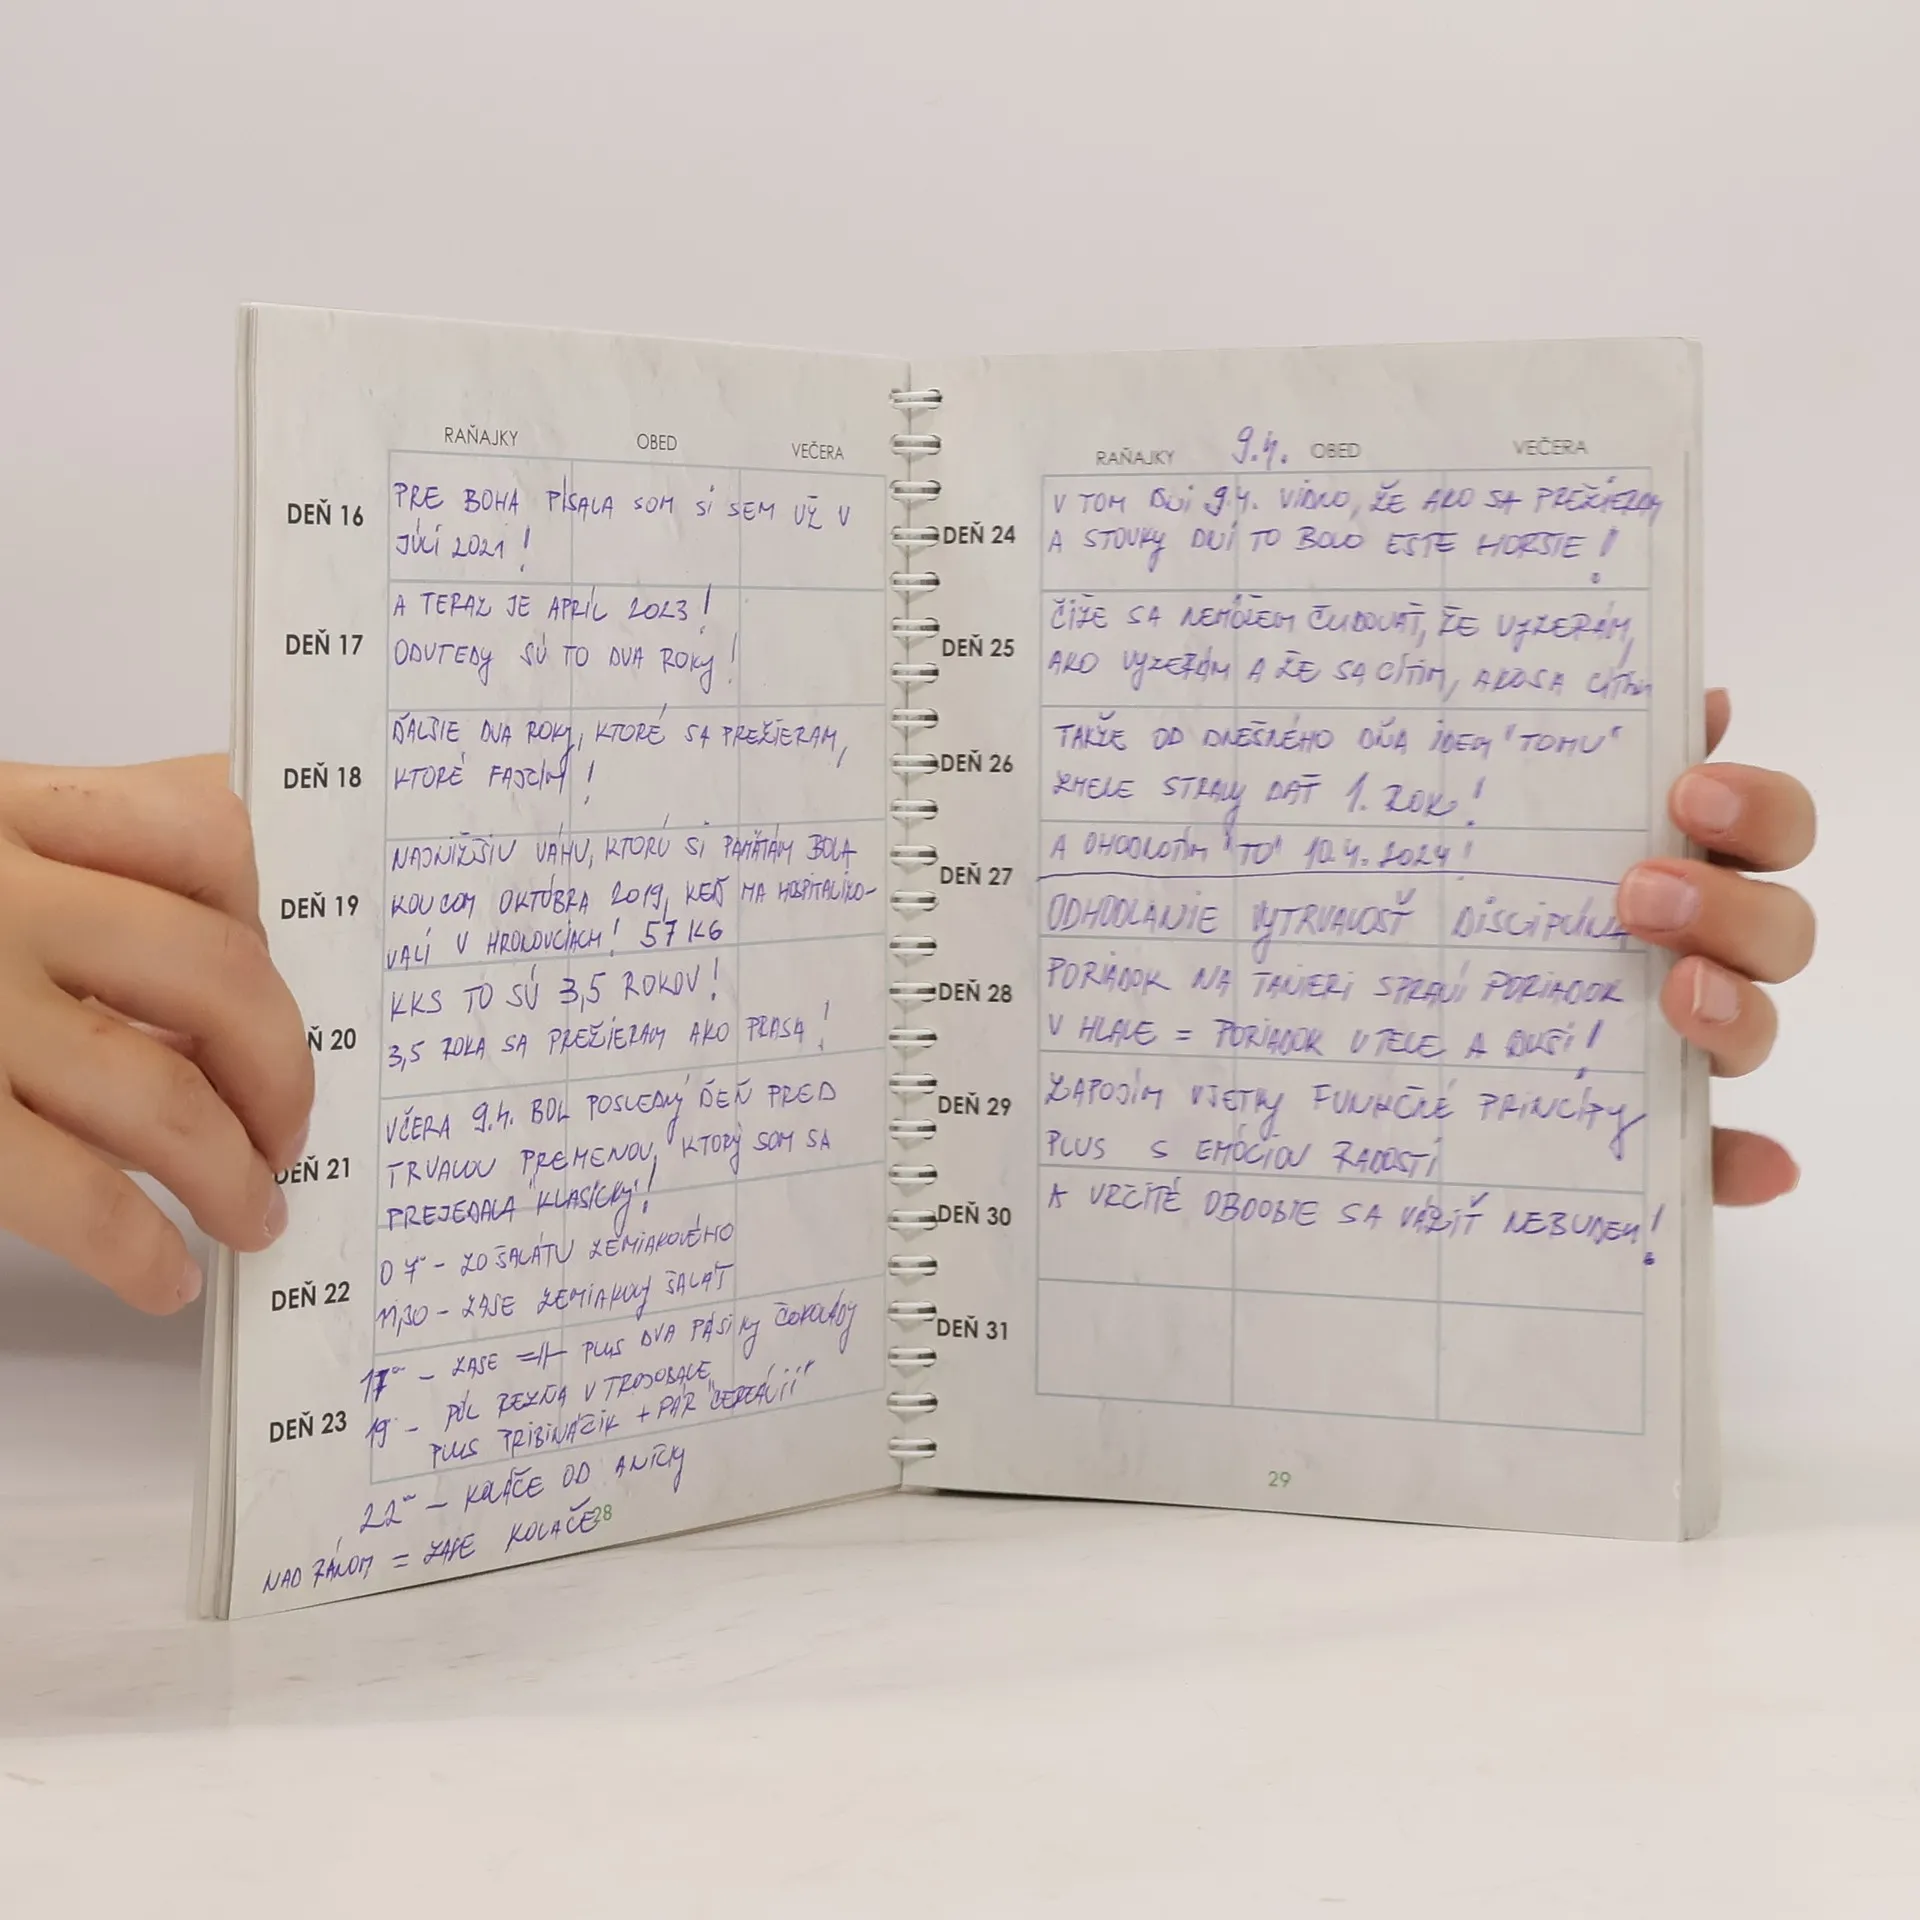 RAŇAJKY OBED VEČERA
DEŇ 16
PRE BOHA PÍSALA SOM SI SEM UŽ V
JÚLI 2021!
DEŇ 17
A TERAZ JE APRÍL 2023!
ODVTEDY SÚ TO DVA ROKY!
DEŇ 18
ĎALŠIE DVA ROKY, KTORÉ SA PREŽIERAM,
KTORÉ FAJČÍM!
DEŇ 19
NAJNIŽŠIU VÁHU, KTORÚ SI PAMÄTÁM BOLA
KONCOM OKTÓBRA 2019, KEĎ MA HOSPITALIZO-
VALI V HRONOVCIACH! 57 KG
Ň 20
KKS TO SÚ 3,5 ROKOV!
3,5 ROKA SA PREŽIERAM AKO PRASA!
DEŇ 21
VČERA 9.4. BOL POSLEDNÝ DEŇ PRED
TRVALOU PREMENOU, KTORÝ SOM SA
PREJEDALA "KLASICKY"!
DEŇ 22
O 7°° - ZO ŠALÁTU ZEMIAKOVÉHO
11,30 - ZASE ZEMIAKOVÝ ŠALÁT
17°° - ZASE =||- PLUS DVA PÁSIKY ČOKOLÁDY
DEŇ 23
19°° - PÓL REZŇA V TROJOBALE
PLUS PRIBINÁČIK + PÁR "CEREÁLIÍ"
22°° - KOLÁČE OD ANIČKY
NAD RÁNOM = ZASE KOLÁČE
28
RAŇAJKY 9.4. OBED VEČERA
DEŇ 24
V TOM DNI 9.4. VIDNO, ŽE AKO SA PREŽIERAM
A STOVKY DNÍ TO BOLO EŠTE HORŠIE!
DEŇ 25
ČIŽE SA NEMÔŽEM ČUDOVAŤ, ŽE VYZERÁM,
AKO VYZERÁM A ŽE SA CÍTIM, AKO SA CÍTIM
DEŇ 26
TAKŽE OD DNEŠNÉHO DŇA IDEM "TOMU"
ZMENE STRAVY DAŤ 1. ROK!
DEŇ 27
A OHODNOTÍM "TO" 10.4.2024!
ODHODLANIE VYTRVALOSŤ DISCIPLÍNA
DEŇ 28
PORIADOK NA TANIERI SPRAVÍ PORIADOK
V HLAVE = PORIADOK V TELE A DUŠI!
DEŇ 29
ZAPOJÍM VŠETKY FUNKČNÉ PRINCÍPY
PLUS S EMÓCIOU RADOSTI
DEŇ 30
A URČITÉ OBDOBIE SA VÁŽIŤ NEBUDEM!
DEŇ 31
29